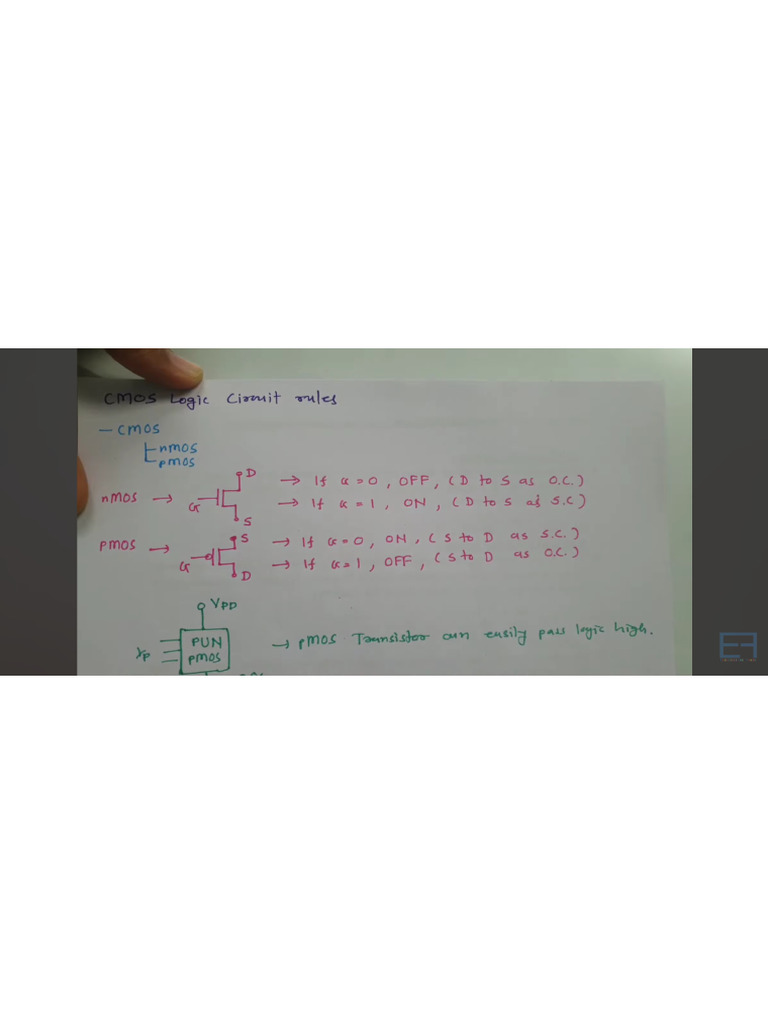 CMOS Logic Circuit rules
— CMOS
nmos
pmos
nMOS → G D S → If G = 0, OFF, (D to S as O.C.)
→ If G = 1, ON, (D to S as S.C)
pMOS → G S D → If G = 0, ON, (S to D as S.C.)
→ If G = 1, OFF, (S to D as O.C.)
VDD
PUN
pMOS
I/P
→ pMOS Transistor can easily pass logic high.